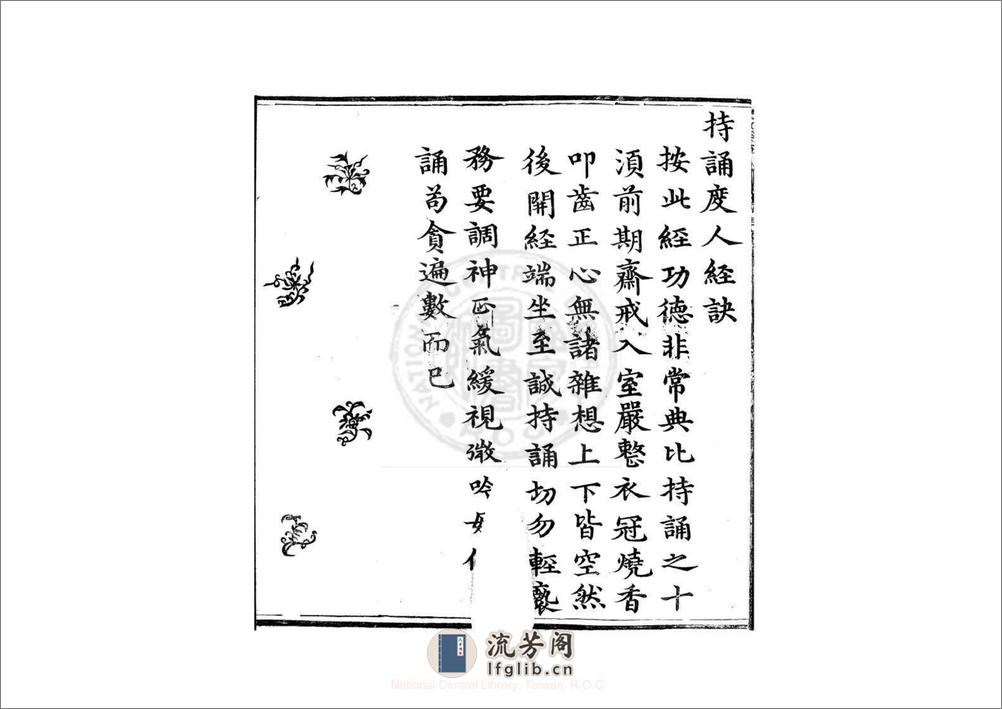 持誦度人經訣
按此經功德非常典比持誦之十
須前期齋戒入室嚴整衣冠燒香
叩齒正心無諸雜想上下皆空然
後開經端坐至誠持誦切勿輕褻
務要調神正氣緩視微吟毋
誦苟貪遍數而已
流芳阁
lfglib.cn
National Central Library, Taiwan, R.O.C.